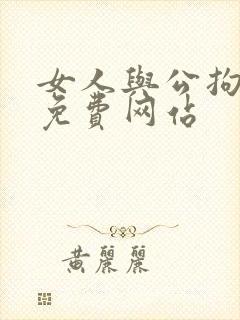 女人與公拘
免費网佔
黄麗麗